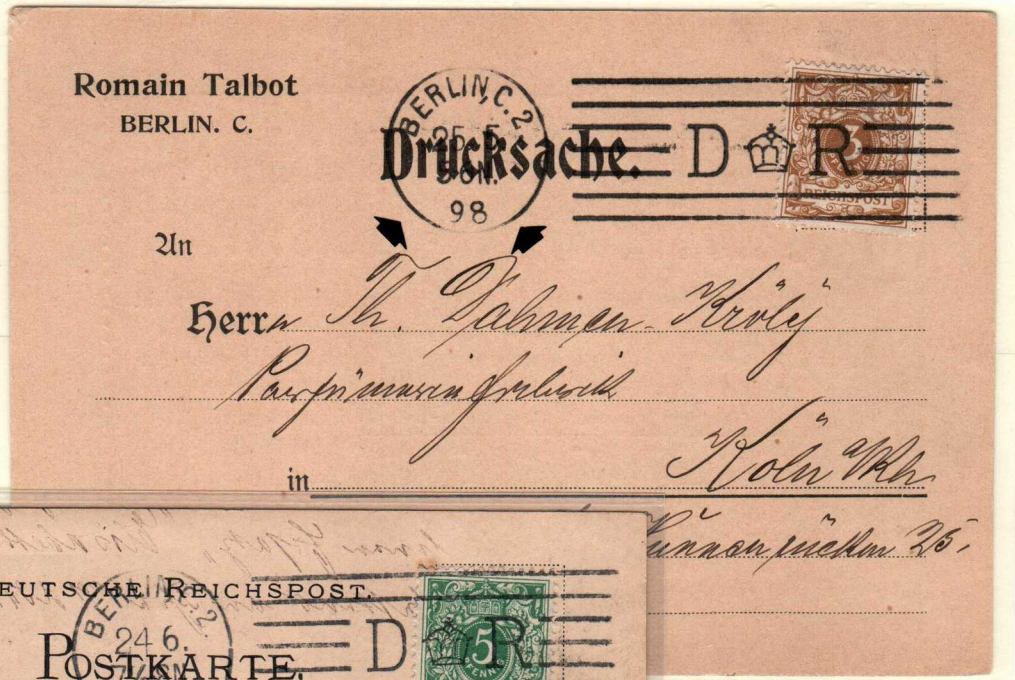 Romain Talbot
BERLIN. C.
BERLIN, C. 2
25 5
98
Drucksache.
D R
3
REICHSPOST
An
Herrn Th. Dahmen-Króly
Parfümeriefabrik
in Köln a/Rh
Hunnenrücken 25.
DEUTSCHE REICHSPOST.
BERLIN C. 2
24 6.
POSTKARTE.
D R
5
PFENNIG